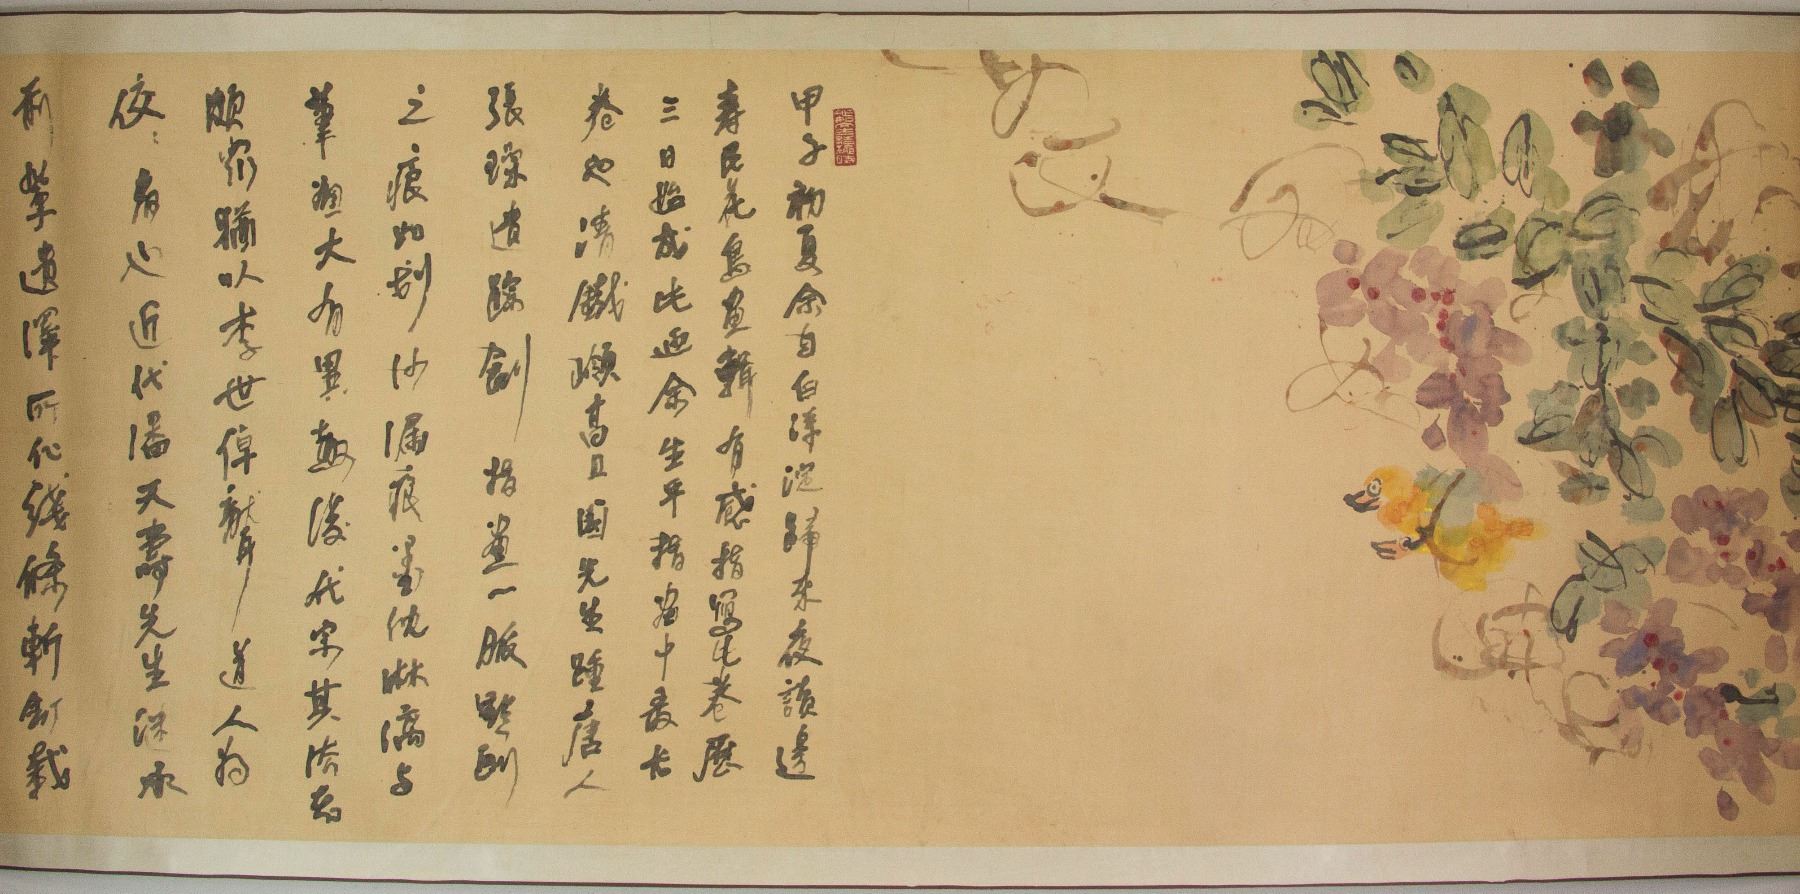 甲子初夏余自白洋淀歸來夜讀邊
壽民花鳥畫輯有感指寫此卷歷
三日始成此迺余生平指畫中最长
卷也清鐵嶺高且園先生踵唐人
張璪遺踪創指畫一脈點劃
之痕如划沙漏痕墨沈淋漓与
筆畫大有異趣後代宗其法者
頗眾猶以李世倬聾道人为
佼佼者也近代潘天壽先生繼承
前輩遺澤所作綫條斬釘截